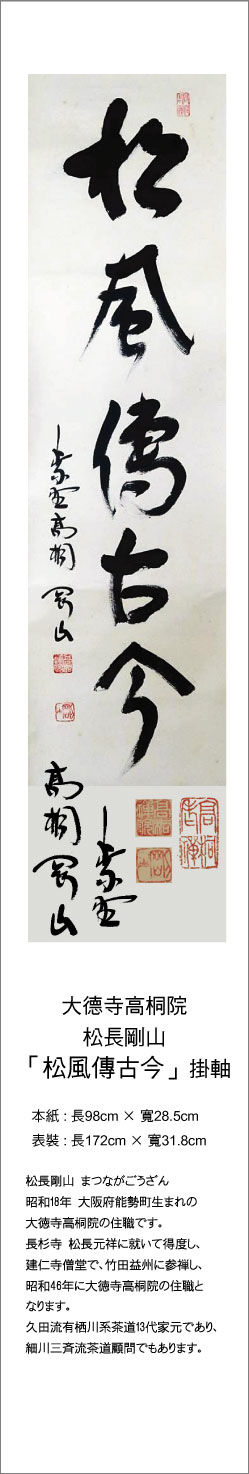 松風傳古今
紫野高桐剛山
高桐剛山
紫野
大德寺高桐院
松長剛山
「松風傳古今」掛軸
本紙 : 長98cm × 寬28.5cm
表裝 : 長172cm × 寬31.8cm
松長剛山 まつながごうざん
昭和18年 大阪府能勢町生まれの
大徳寺高桐院の住職です。
長杉寺 松長元祥に就いて得度し、
建仁寺僧堂で、竹田益州に参禅し、
昭和46年に大徳寺高桐院の住職と
なります。
久田流有栖川系茶道13代家元であり、
細川三斉流茶道顧問でもあります。